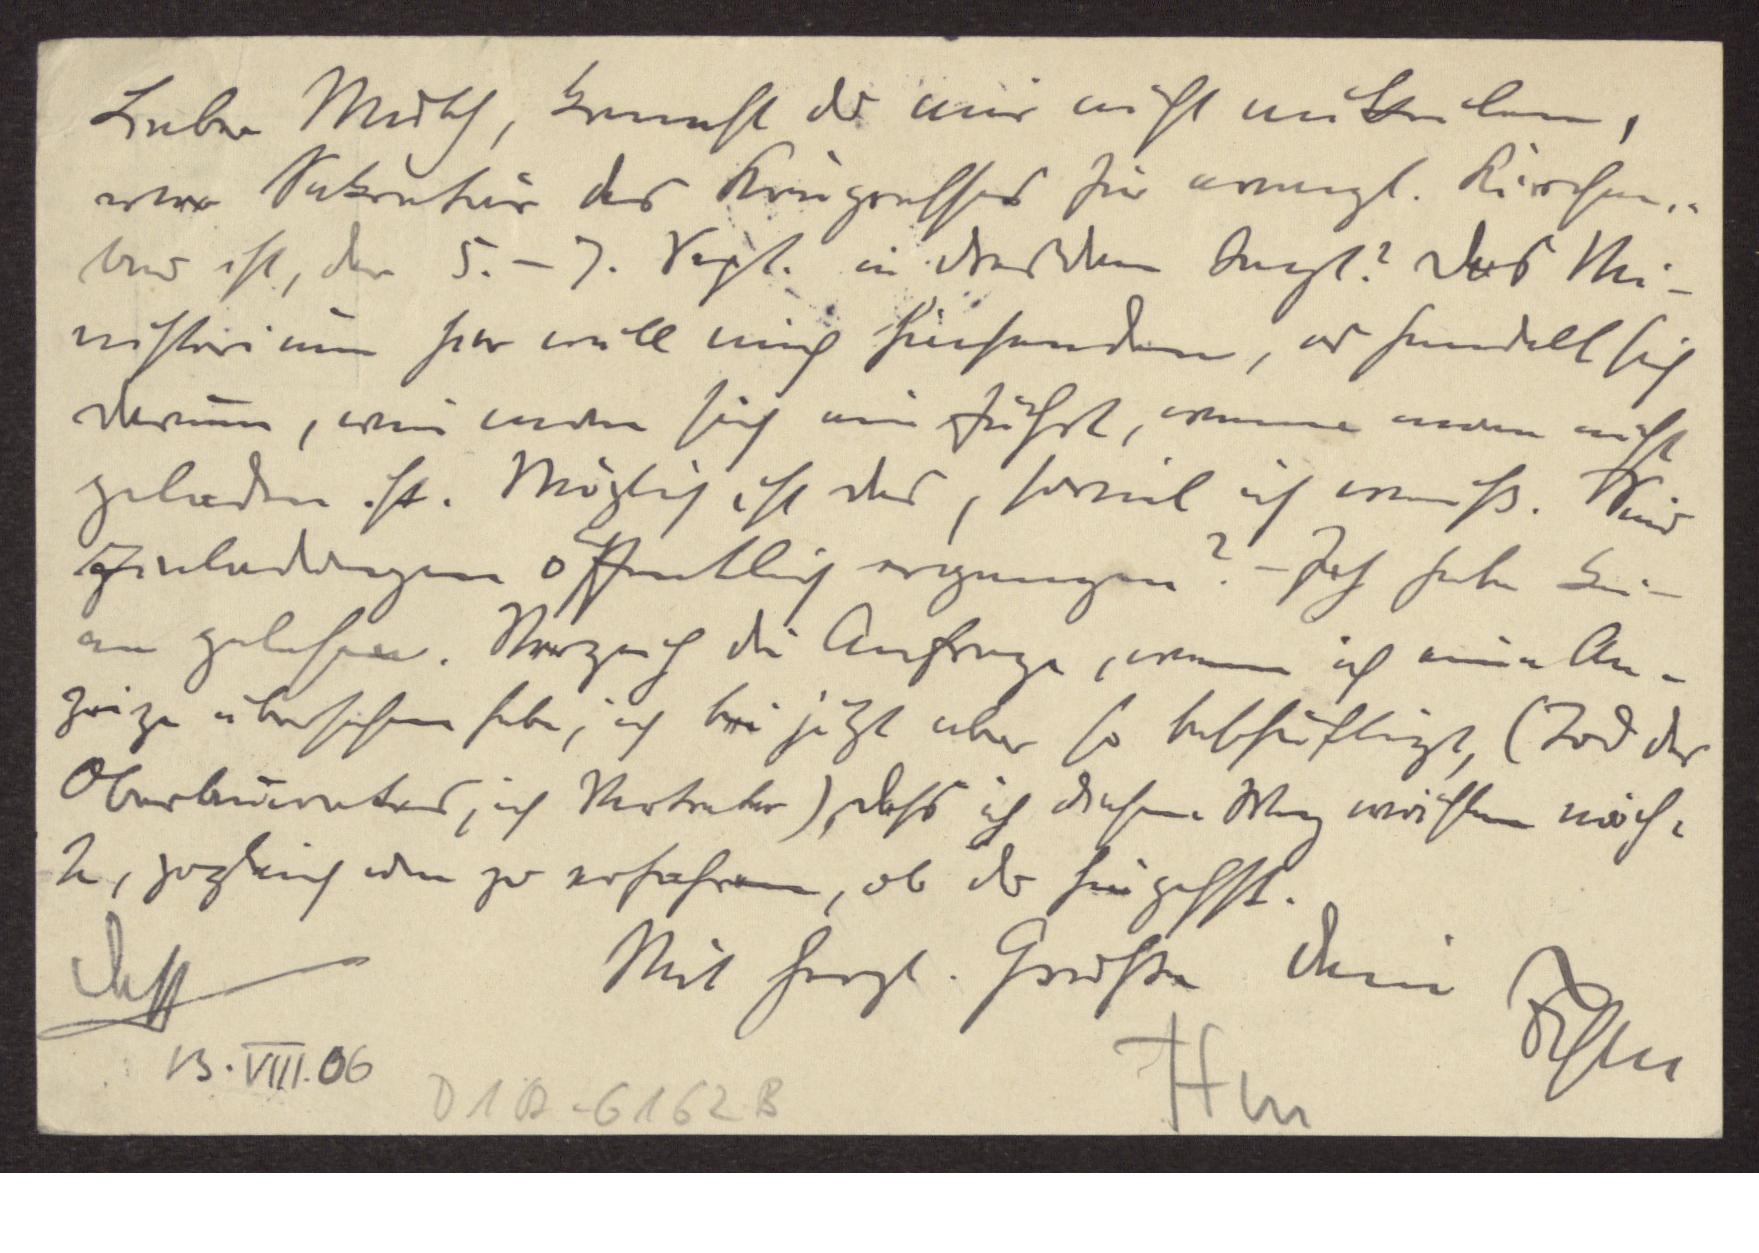 Lieber Muth, kannst du mir nicht mitteilen,
wer Sekretär des Kongresses für evangl. Kirchen-
bau ist, der 5.–7. Sept. in Dresden tagt? Das Mi-
nisterium hier will mich hinsenden, es handelt sich
darum, wie man sich einführt, wenn man nicht
geladen ist. Möglich ist das, soviel ich weiß. Sind
Einladungen öffentlich ergangen? – Ich habe kei-
ne gelesen. Verzeih die Anfrage, wenn ich eine An-
zeige übersehen habe, ich bin jetzt aber so beschäftigt, (Tod des
Oberbaurates, ich Vertreter), dass ich diesen Weg wählen möch-
te, zugleich um zu erfahren, ob du hingehst.
Mit herzl. Grüßen Dein
13.VIII.06
D1A-6162B